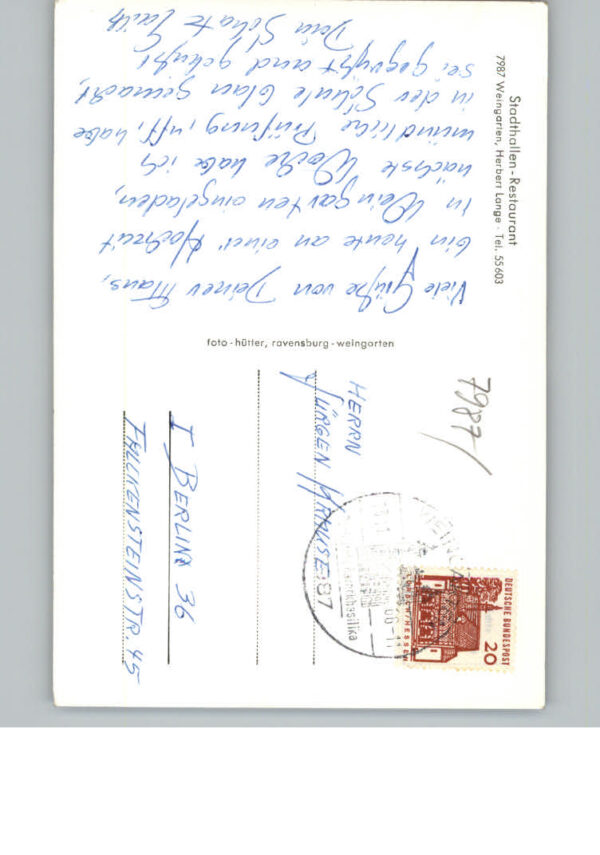 Stadthallen-Restaurant
7987 Weingarten, Herbert Lange · Tel. 55603
Viele Grüße von Deiner Maus,
bin heute an einer Hochzeit
in Weingarten eingeladen,
nächste Woche habe ich
mündliche Prüfung, uff, habe
in der Schule blau gemacht,
sei gegrüßt und geküßt
Dein Schatz
foto-hütter, ravensburg-weingarten
7987/
DEUTSCHE BUNDESPOST
20
WEINGA
87
basilika
HERRN
JÜRGEN KRAUSE
1 BERLIN 36
FALCKENSTEINSTR. 45